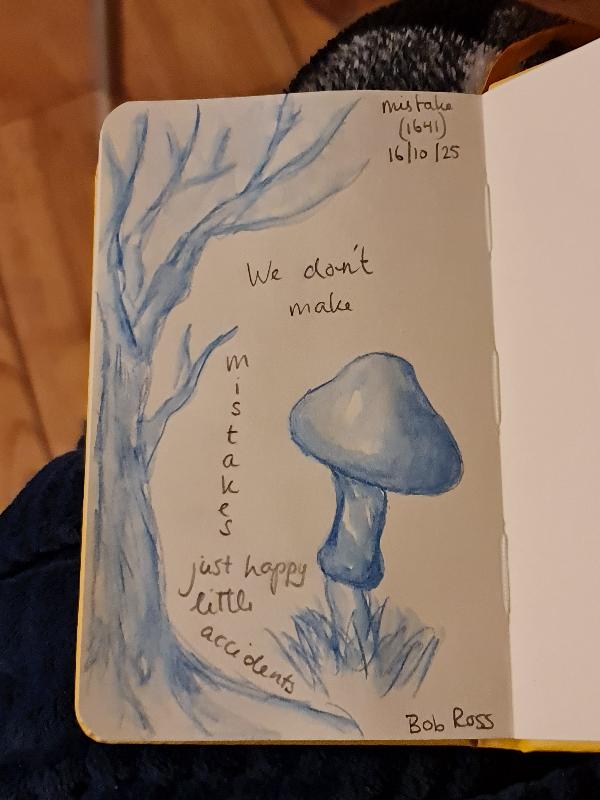 mistake
(1641)
16/10/25
We don't
make
mistakes
just happy
little
accidents
Bob Ross